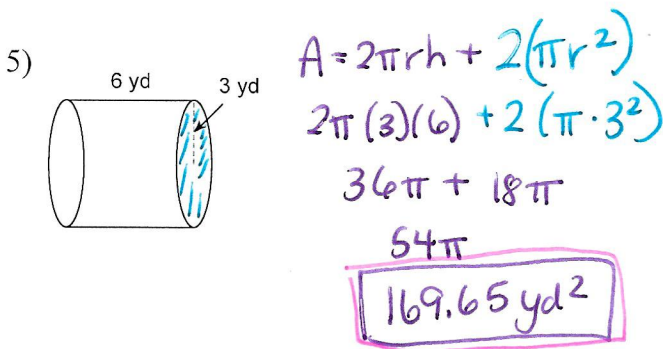 5)
6 yd
3 yd
A = 2πrh + 2(πr²)
2π(3)(6) + 2(π·3²)
36π + 18π
54π
169.65 yd²